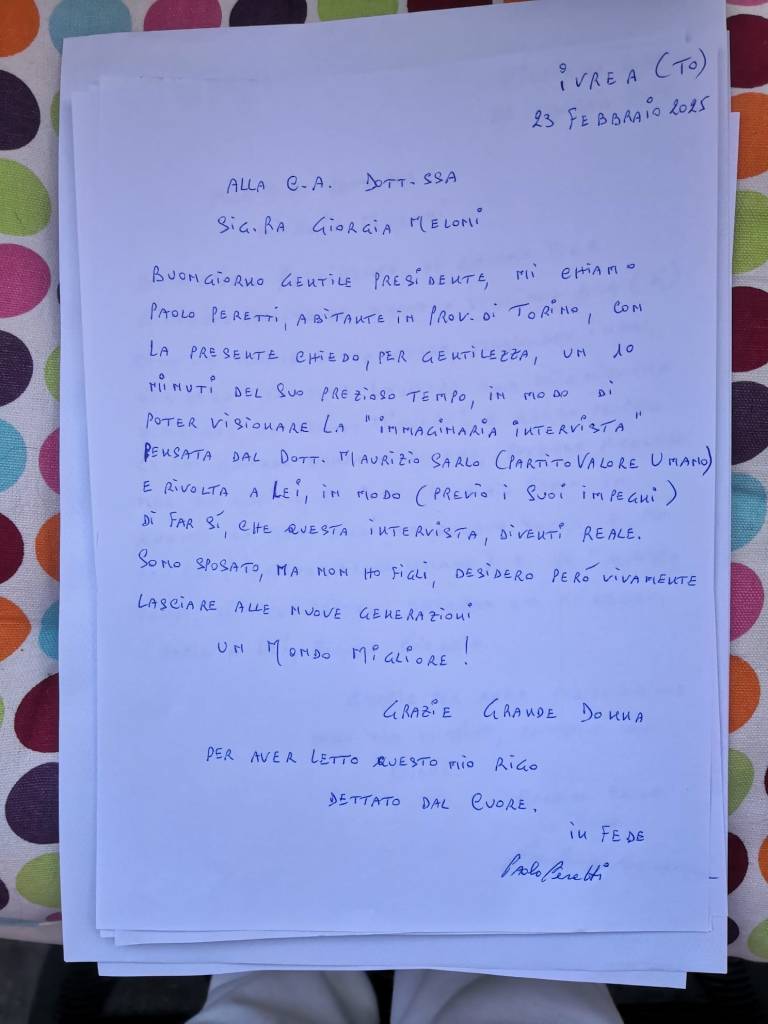 iVREA (TO)
23 FEBBRAiO 2025
ALLA C.A. DOTT.SSA
SiG.RA GiORGiA MELONi
BUONGiORNO GENTiLE PRESiDENTE, Mi CHiAMO
PAOLO PERETTi, ABiTANTE iN PROV. Di TORiNO, CON
LA PRESENTE CHiEDO, PER GENTiLEZZA, UN 10
MiNUTi DEL SUO PREZiOSO TEMPO, iN MODO Di
POTER ViSiONARE LA "iMMAGiNARiA iNTERViSTA"
PENSATA DAL DOTT. MAURiZiO SARLO (PARTiTO VALORE UMANO)
E RiVOLTA A LEi, iN MODO (PREViO i SUOi iMPEGNi)
Di FAR Sí, CHE QUESTA iNTERViSTA, DiVENTi REALE.
SONO SPOSATO, MA NON HO FiGLi, DESiDERO PERÓ ViVAMENTE
LASCiARE ALLE NUOVE GENERAZiONi
UN MONDO MiGLiORE!
GRAZiE GRANDE DONNA
PER AVER LETTO QUESTO MiO RiGO
DETTATO DAL CUORE.
iN FEDE
Paolo Peretti